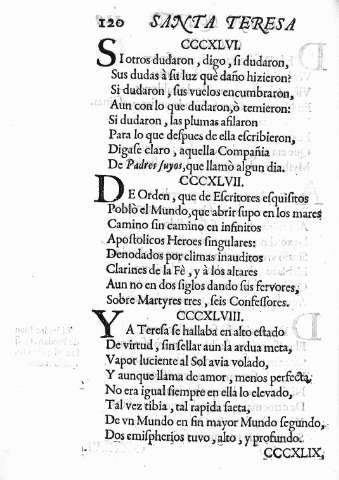 120 SANTA TERESA
CCCXLVI.
SI otros dudaron, digo, si dudaron,
Sus dudas à su luz què daño hizieron?
Si dudaron, sus vuelos encumbraron,
Aun con lo que dudaron, ò temieron:
Si dudaron, las plumas afilaron
Para lo que despues de ella escribieron,
Digase claro, aquella Compañia
De Padres suyos, que llamò algun dia.
CCCXLVII.
DE Orden, que de Escritores esquisitos
Poblò el Mundo, que abrir supo en los mares
Camino sin camino en infinitos
Apostolicos Heroes singulares:
Denodados por climas inauditos
Clarines de la Fè, y à los altares
Aun no en dos siglos dando sus fervores,
Sobre Martyres tres, seis Confessores.
CCCXLVIII.
YA Teresa se hallaba en alto estado
De virtud, sin sellar aun la ardua meta,
Vapor luciente al Sol avia volado,
Y aunque llama de amor, menos perfecta,
No era igual siempre en ella lo elevado,
Tal vez tibia, tal rapida saeta,
De vn Mundo en fin mayor Mundo segundo,
Dos emispherios tuvo, alto, y profundo.
CCCXLIX,